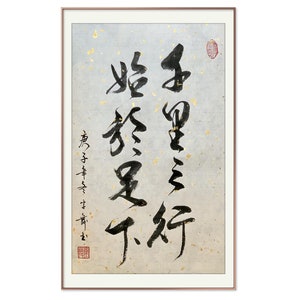 千里之行
始於足下
庚子年冬